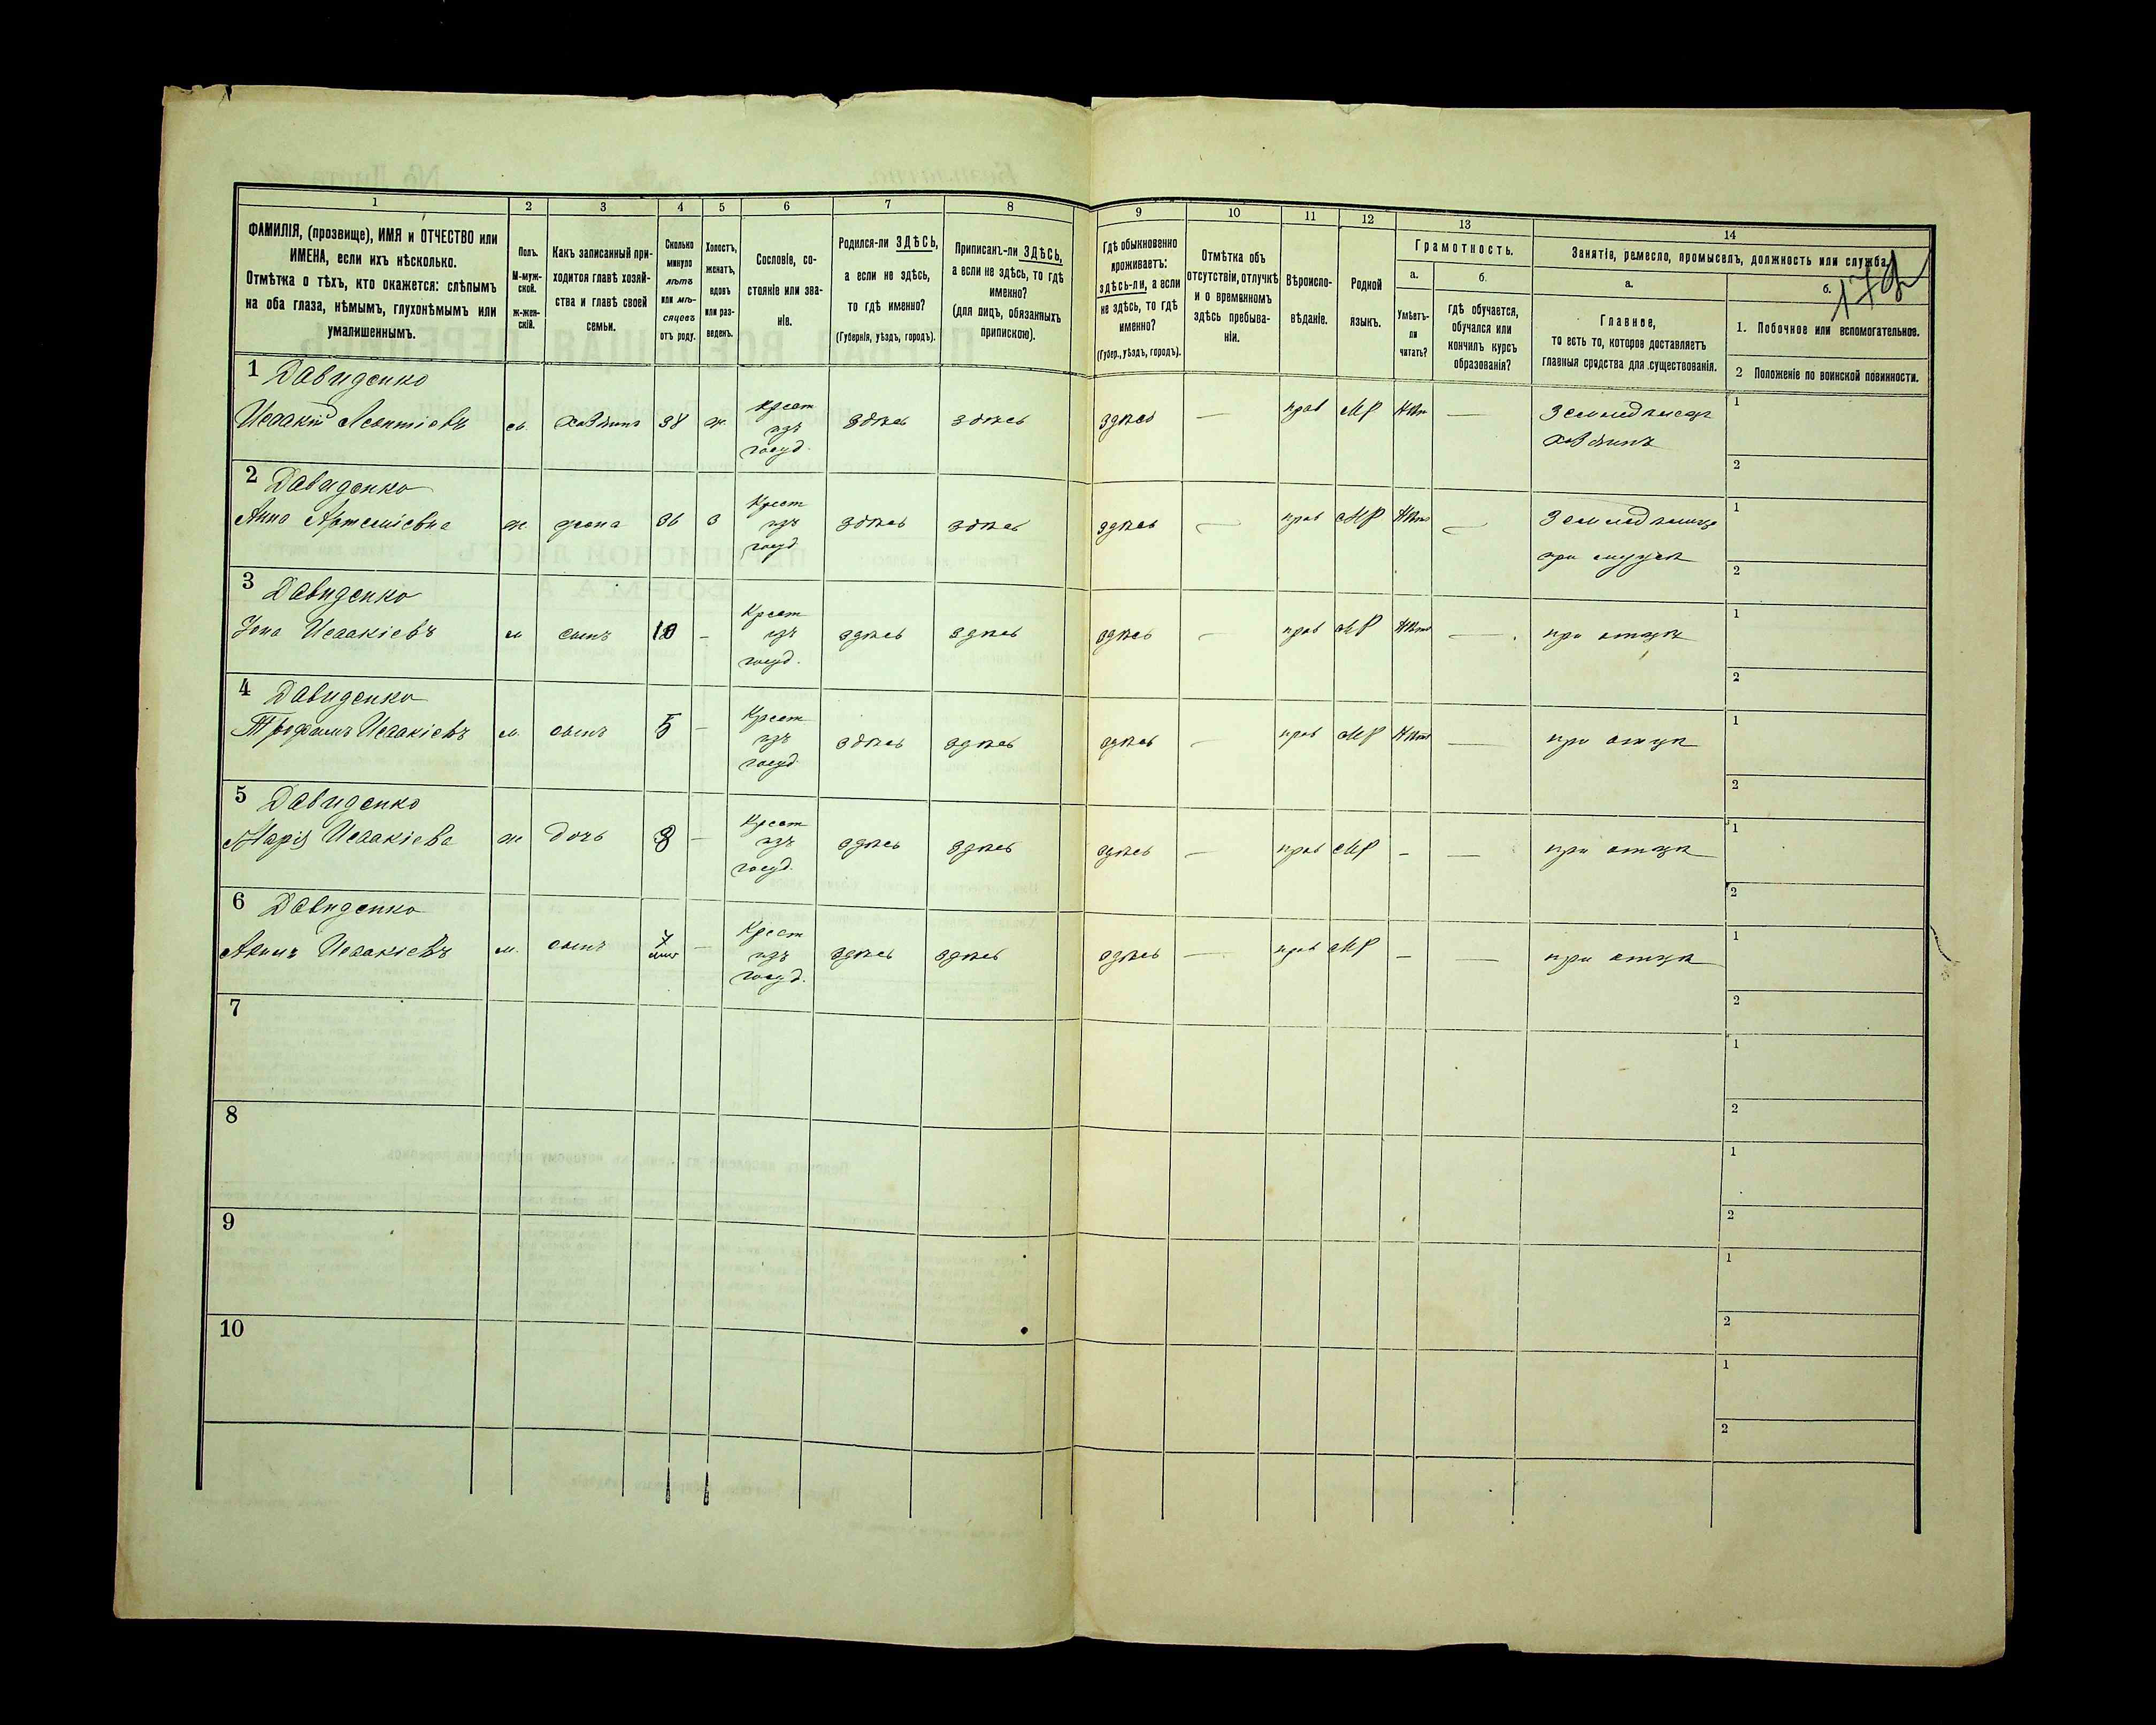 1 2 3 4 5 6 7 8 9 10 11 12 13 14
ФАМИЛІЯ, (прозвище), ИМЯ и ОТЧЕСТВО или
ИМЕНА, если ихъ нѣсколько.
Отмѣтка о тѣхъ, кто окажется: слѣпымъ
на оба глаза, нѣмымъ, глухонѣмымъ или
умалишеннымъ.
Полъ.
М-муж-
ской.
Ж-жен-
скій.
Какъ записанный при-
ходится главѣ хозяй-
ства и главѣ своей
семьи.
Сколько
минуло
лѣтъ
или мѣ-
сяцевъ
отъ роду.
Холостъ,
женатъ,
вдовъ
или раз-
веденъ.
Сословіе, со-
стояніе или зва-
ніе.
Родился-ли ЗДѢСЬ,
а если не здѣсь,
то гдѣ именно?
(Губернія, уѣздъ, городъ).
Приписанъ-ли ЗДѢСЬ,
а если не здѣсь, то гдѣ
именно?
(для лицъ, обязанныхъ
припискою).
Гдѣ обыкновенно
проживаетъ:
здѣсь-ли, а если
не здѣсь, то гдѣ
именно?
(Губер., уѣздъ, городъ).
Отмѣтка объ
отсутствіи, отлучкѣ
и о временномъ
здѣсь пребыва-
ніи.
Вѣроиспо-
вѣданіе.
Родной
языкъ.
Грамотность.
а.
Умѣетъ-
ли
читать?
б.
гдѣ обучается,
обучался или
кончилъ курсъ
образованія?
Занятіе, ремесло, промыселъ, должность или служба.
а.
Главное,
то есть то, которое доставляетъ
главныя средства для существованія.
б.
1. Побочное или вспомогательное.
2 Положеніе по воинской повинности.
1 Давиденко
Исаакій Леонтіевъ м. хозяинъ 38 ж. Крест изъ госуд. здѣсь здѣсь здѣсь — прав МР Нѣт — Земледѣлецъ хозяинъ
1
2
2 Давиденко
Анна Артеміевна ж. жена 36 з Крест изъ госуд здѣсь здѣсь здѣсь — прав МР Нѣт — при мужѣ
1
2
3 Давиденко
Іона Исаакіевъ м сынъ 10 - Крест изъ госуд. здѣсь здѣсь здѣсь — прав МР Нѣт — при отцѣ
1
2
4 Давиденко
Трофимъ Исаакіевъ м. сынъ 5 — Крест изъ госуд здѣсь здѣсь здѣсь — прав МР Нѣт — при отцѣ
1
2
5 Давиденко
Марія Исаакіева ж дочь — Крест изъ госуд. здѣсь здѣсь здѣсь — прав МР - — при отцѣ
1
2
6 Давиденко
Исаакіевъ м. сынъ 7 — Крест изъ госуд. здѣсь здѣсь здѣсь — прав МР - — при отцѣ
1
2
7
1
2
8
1
2
9
1
2
10
1
2